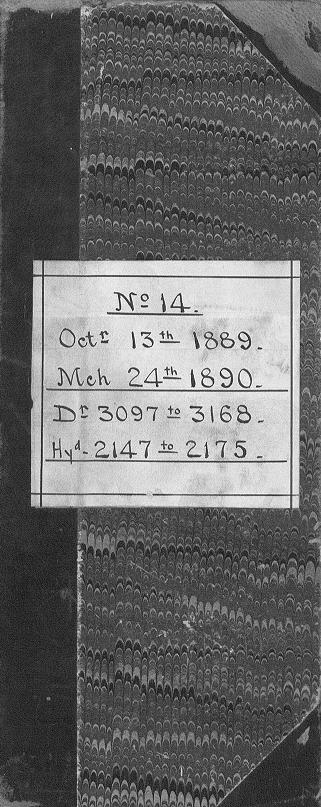 No 14.
Octr 13th 1889.
Mch 24th 1890.
Dr 3097 to 3168.
Hyd. 2147 to 2175.